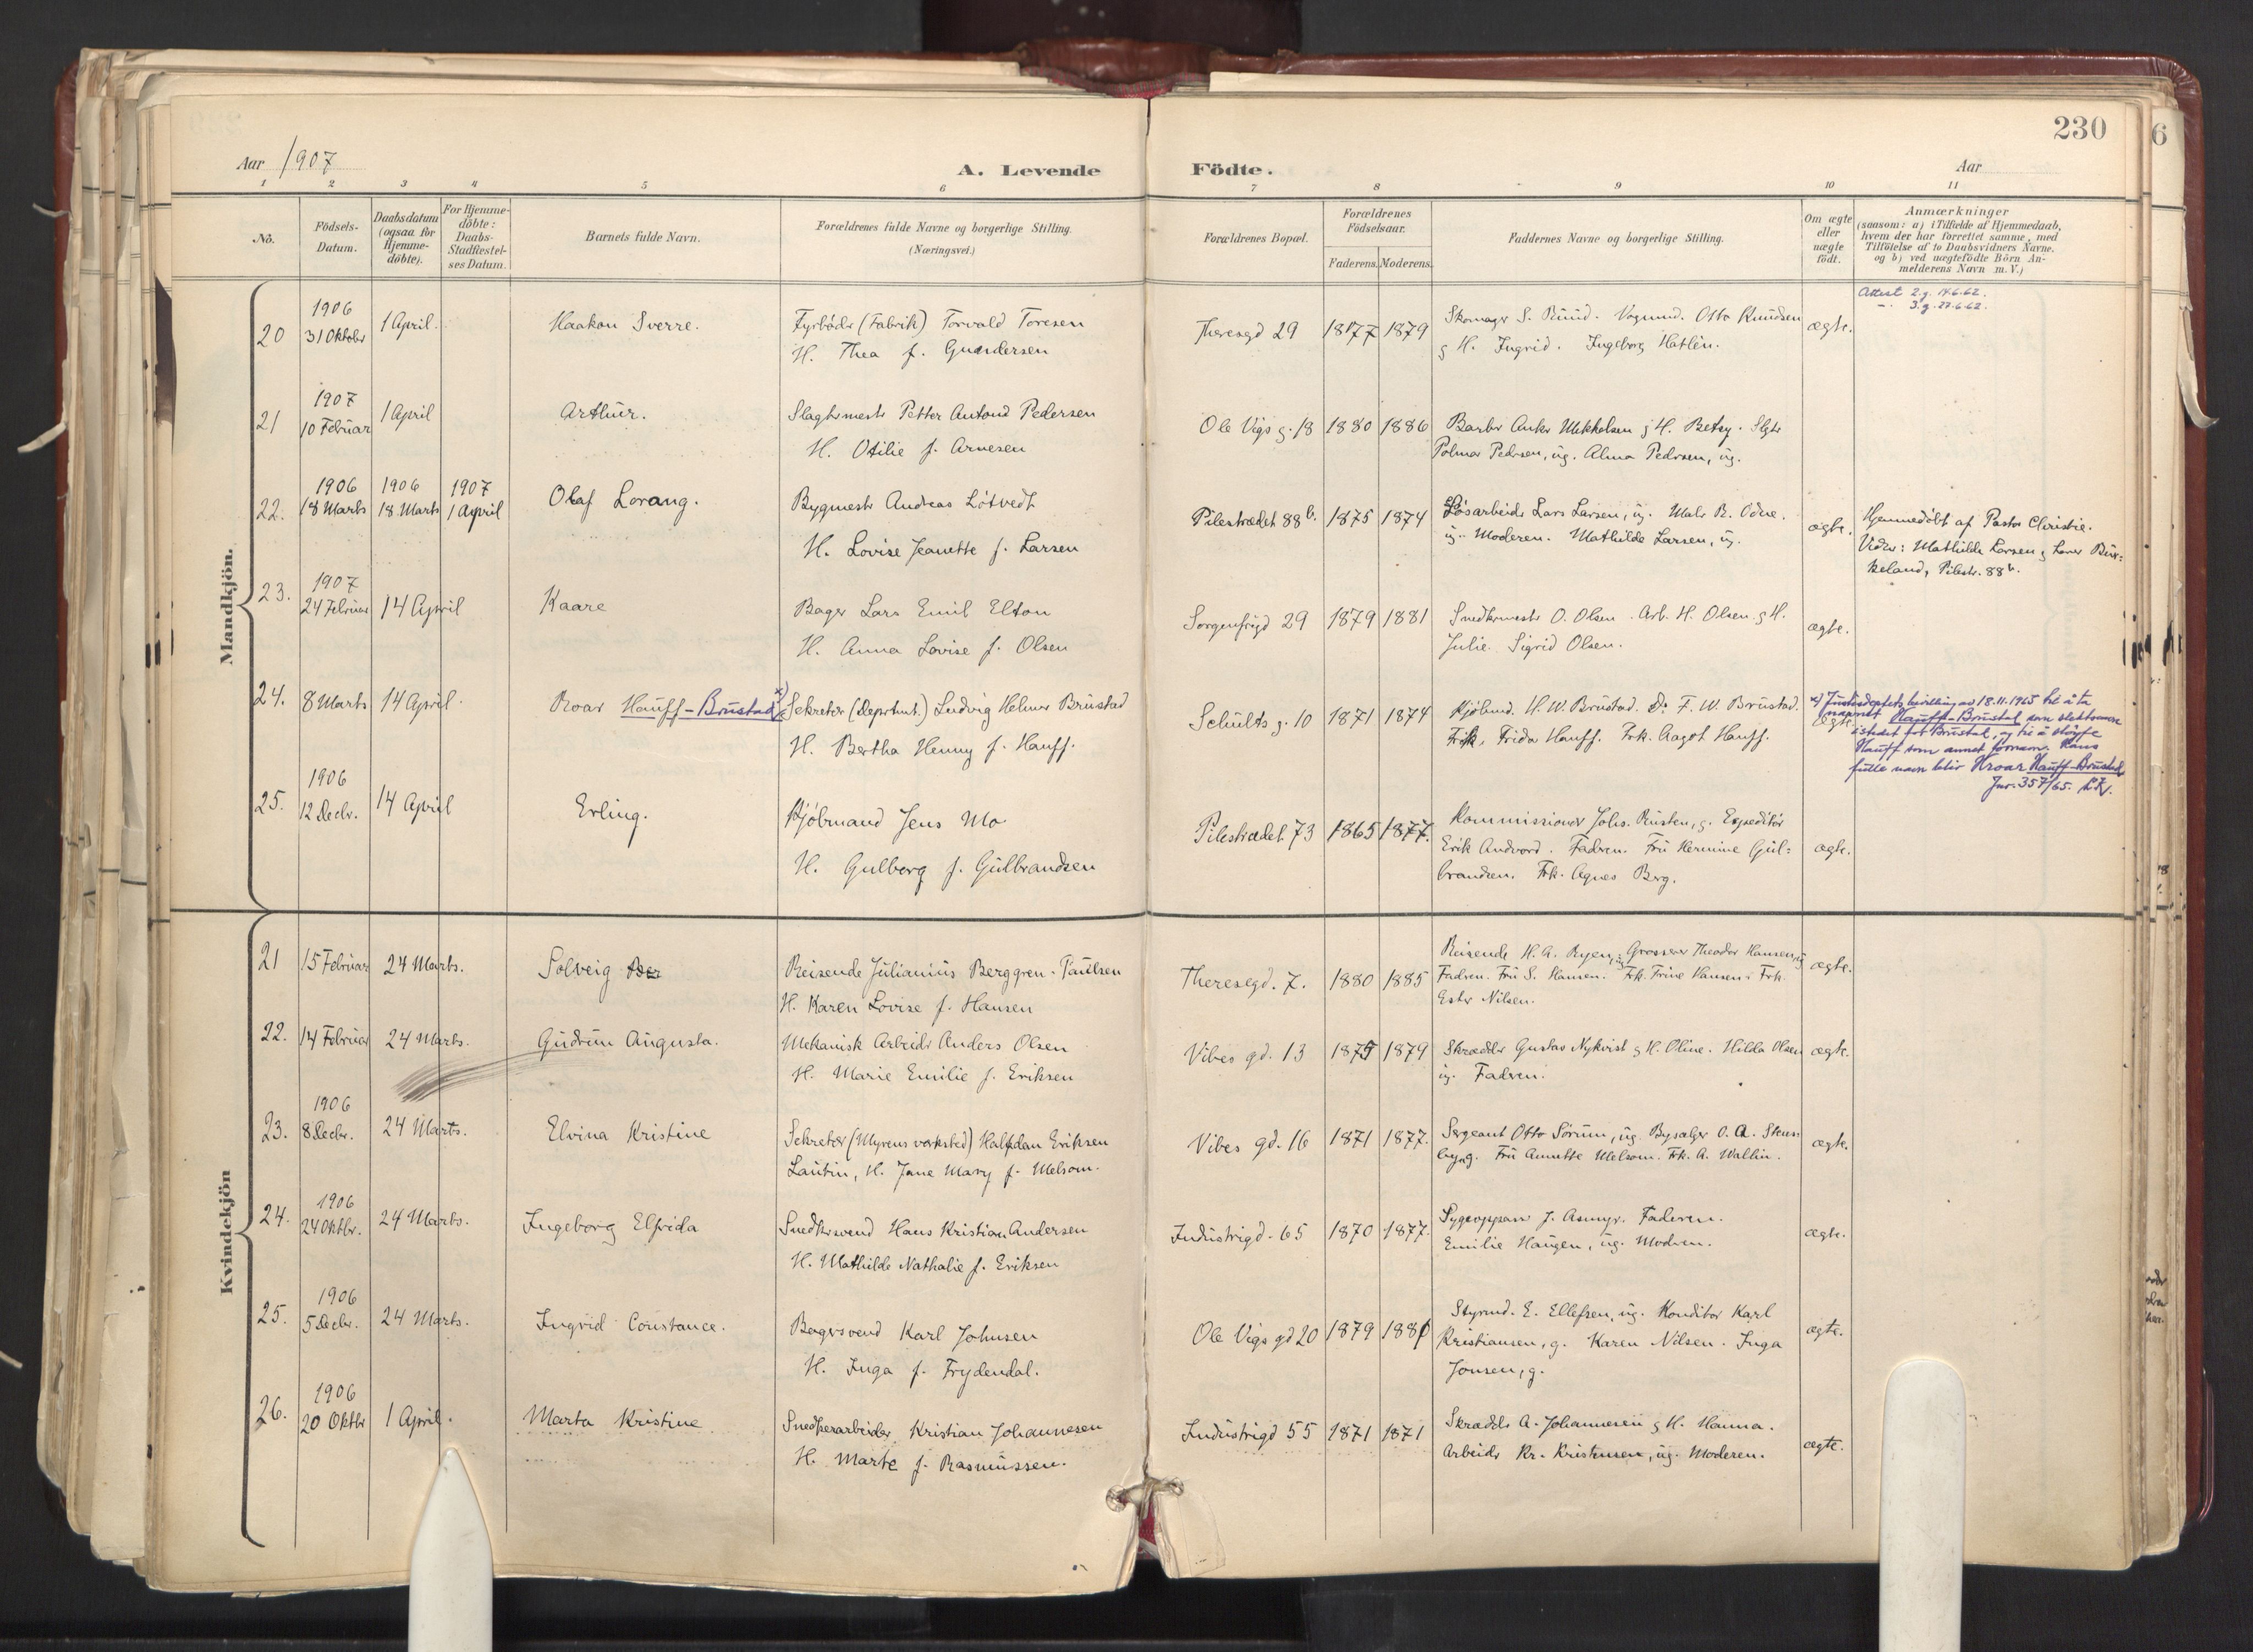 230
6
Aar 1907
A. Levende Födte.
Aar
1 2 3 4 5 6 7 8 9 10 11
No.
Födsels-
Datum.
Daabsdatum
(ogsaa for
Hjemme-
döbte).
For Hjemme-
döbte:
Daabs-
Stadfæstel-
ses Datum.
Barnets fulde Navn.
Forældrenes fulde Navne og borgerlige Stilling.
(Næringsvei.)
Forældrenes Bopæl.
Forældrenes
Födselsaar.
Faderens. Moderens.
Faddernes Navne og borgerlige Stilling.
Om ægte
eller
uægte
født.
Anmærkninger
(saasom: a) i Tilfælde af Hjemmedaab,
hvem der har forrettet samme, med
Tilföielse af to Daabsvidners Navne.
og b) ved uægtefödte Börn An-
melderens Navn m. V.)
Mandkjön.
20
1906
31 Oktober
1 April.
Haakon Sverre.
Fyrböder (Fabrik) Torvald Toresen
H. Thea f. Gundersen
Theresegd 29
1877 1879
Skomager S. Ruud. Vognmd. Otto Knudsen
g H. Ingrid. Ingeborg Hatlén.
ægte.
Attest 2.g. 14.6.62.
-. 3.g. 27.6.62.
21
1907
10 Februar
1 April
Arthur.
Slagtermester Petter Antond Pedersen
H. Otilie f. Arnesen
Ole Vigs g. 18
1880 1886
Barber Anker Mikkelsen g H. Betsy. Slgtr
Palmar Pedersen, ug. Alma Pedersen, ug.
22.
1906
18 Marts
1906
18 Marts
1907
1 April
Olaf Lorang.
Bygmester Andreas Lötvedt
H. Lovise Jeanette f. Larsen
Pilestrædet 88 b.
1875 1874
Lösarbeider Lars Larsen, ug. Maler B. Odne.
ug. Moderen. Mathilde Larsen, ug.
ægte.
Hjemmedöbt af Pastor Christie.
Vidner: Mathilde Larsen g Lars Bir=
keland, Pilestr. 88 b.
23.
1907
24 Februar
14 April
Kaare
Bager Lars Emil Elton
H. Anna Lovise f. Olsen
Sorgenfrigd 29
1879 1881
Snedkermester O. Olsen. Arb. H. Olsen g H.
Julie. Sigrid Olsen.
ægte.
24.
8 Marts
14 April.
Roar Hauff-Brustad x)
Sekretær (Deprtmt.) Ludvig Helmer Brustad
H. Bertha Henny f. Hauff.
Schults g. 10
1871 1874
Kjöbmd. H. W. Brustad. Dr. F. W. Brustad.
Frk. Frida Hauff. Frk. Aagot Hauff.
ægte.
x) Justisdeptets bevilling av 18.11.1965 til å ta
navnet Hauff-Brustad som slektsnavn
istedet for Brustad, og til å sløyfe
Hauff som annet fornavn. Hans
fulle navn blir Hroar Hauff-Brustad
Jnr. 357/65.
25.
1906
12 Decbr.
14 April
Erling.
Kjöbmand Jens Mo
H. Gulborg f. Gulbrandsen
Pilestrædet 73
1865 1877.
Kommissionær Johs. Rusten, g. Expeditör
Erik Andvord. Fadren. Fru Hermine Gul=
brandsen. Frk. Agnes Berg.
ægte.
Kvindekjön
21
15 Februar
24 Marts.
Solveig
Reisende Julianius Berggren-Paulsen
H. Karen Lovise f. Hansen
Theresegd. 7.
1880 1885
Reisende H. A. Ryen, ug Grosserer Theodor Hansen, ug
Fadren. Fru S. Hansen. Frk. Trine Hansen. Frk.
Ester Nilsen.
ægte.
22.
14 Februar
24 Marts.
Gudrun Augusta.
Mekanisk Arbeider Anders Olsen
H. Marie Emilie f. Eriksen
Vibes gd. 13
1875 1879
Skrædder Gustav Nykvist g H. Oline. Hilda Olsen
ug. Fadren.
ægte.
23.
1906
8 Decbr.
24 Marts.
Elvina Kristine
Sekretær (Myrens verksted) Halfdan Eriksen
Lautin, H. Jane Mary f. Melsom.
Vibes gd. 16
1871 1877.
Sergeant Otto Sörum, ug. Bysælger O. A. Stens-
by, g. Fru Annette Melsom. Frk. A. Wallin.
ægte.
24.
1906
24 Oktbr.
24 Marts.
Ingeborg Elfrida
Snedkersvend Hans Kristian Andersen
H. Mathilde Nathalie f. Eriksen
Industrigd. 65
1870 1877.
Sygeoppasser J. Asmyr. Faderen.
Emilie Haugen, ug. Modren.
ægte.
25.
1906
5 Decbr.
24 Marts.
Ingrid Constance.
Bagersvend Karl Johnsen
H. Inga f. Frydendal.
Ole Vigs gd 20
1879 1881
Styrmd. E. Ellefsen, ug. Konditor Karl
Kristiansen, g. Karen Nilsen. Inga
Jonsen, g.
ægte.
26.
1906
20 Oktbr
1 April.
Marta Kristine
Snedkerarbeider Kristian Johannesen
H. Marte f. Rasmussen.
Industrigd 55
1871 1871
Skrædder A. Johannesen g H. Hanna.
Arbeider Kr. Kristensen, ug. Moderen.
ægte.